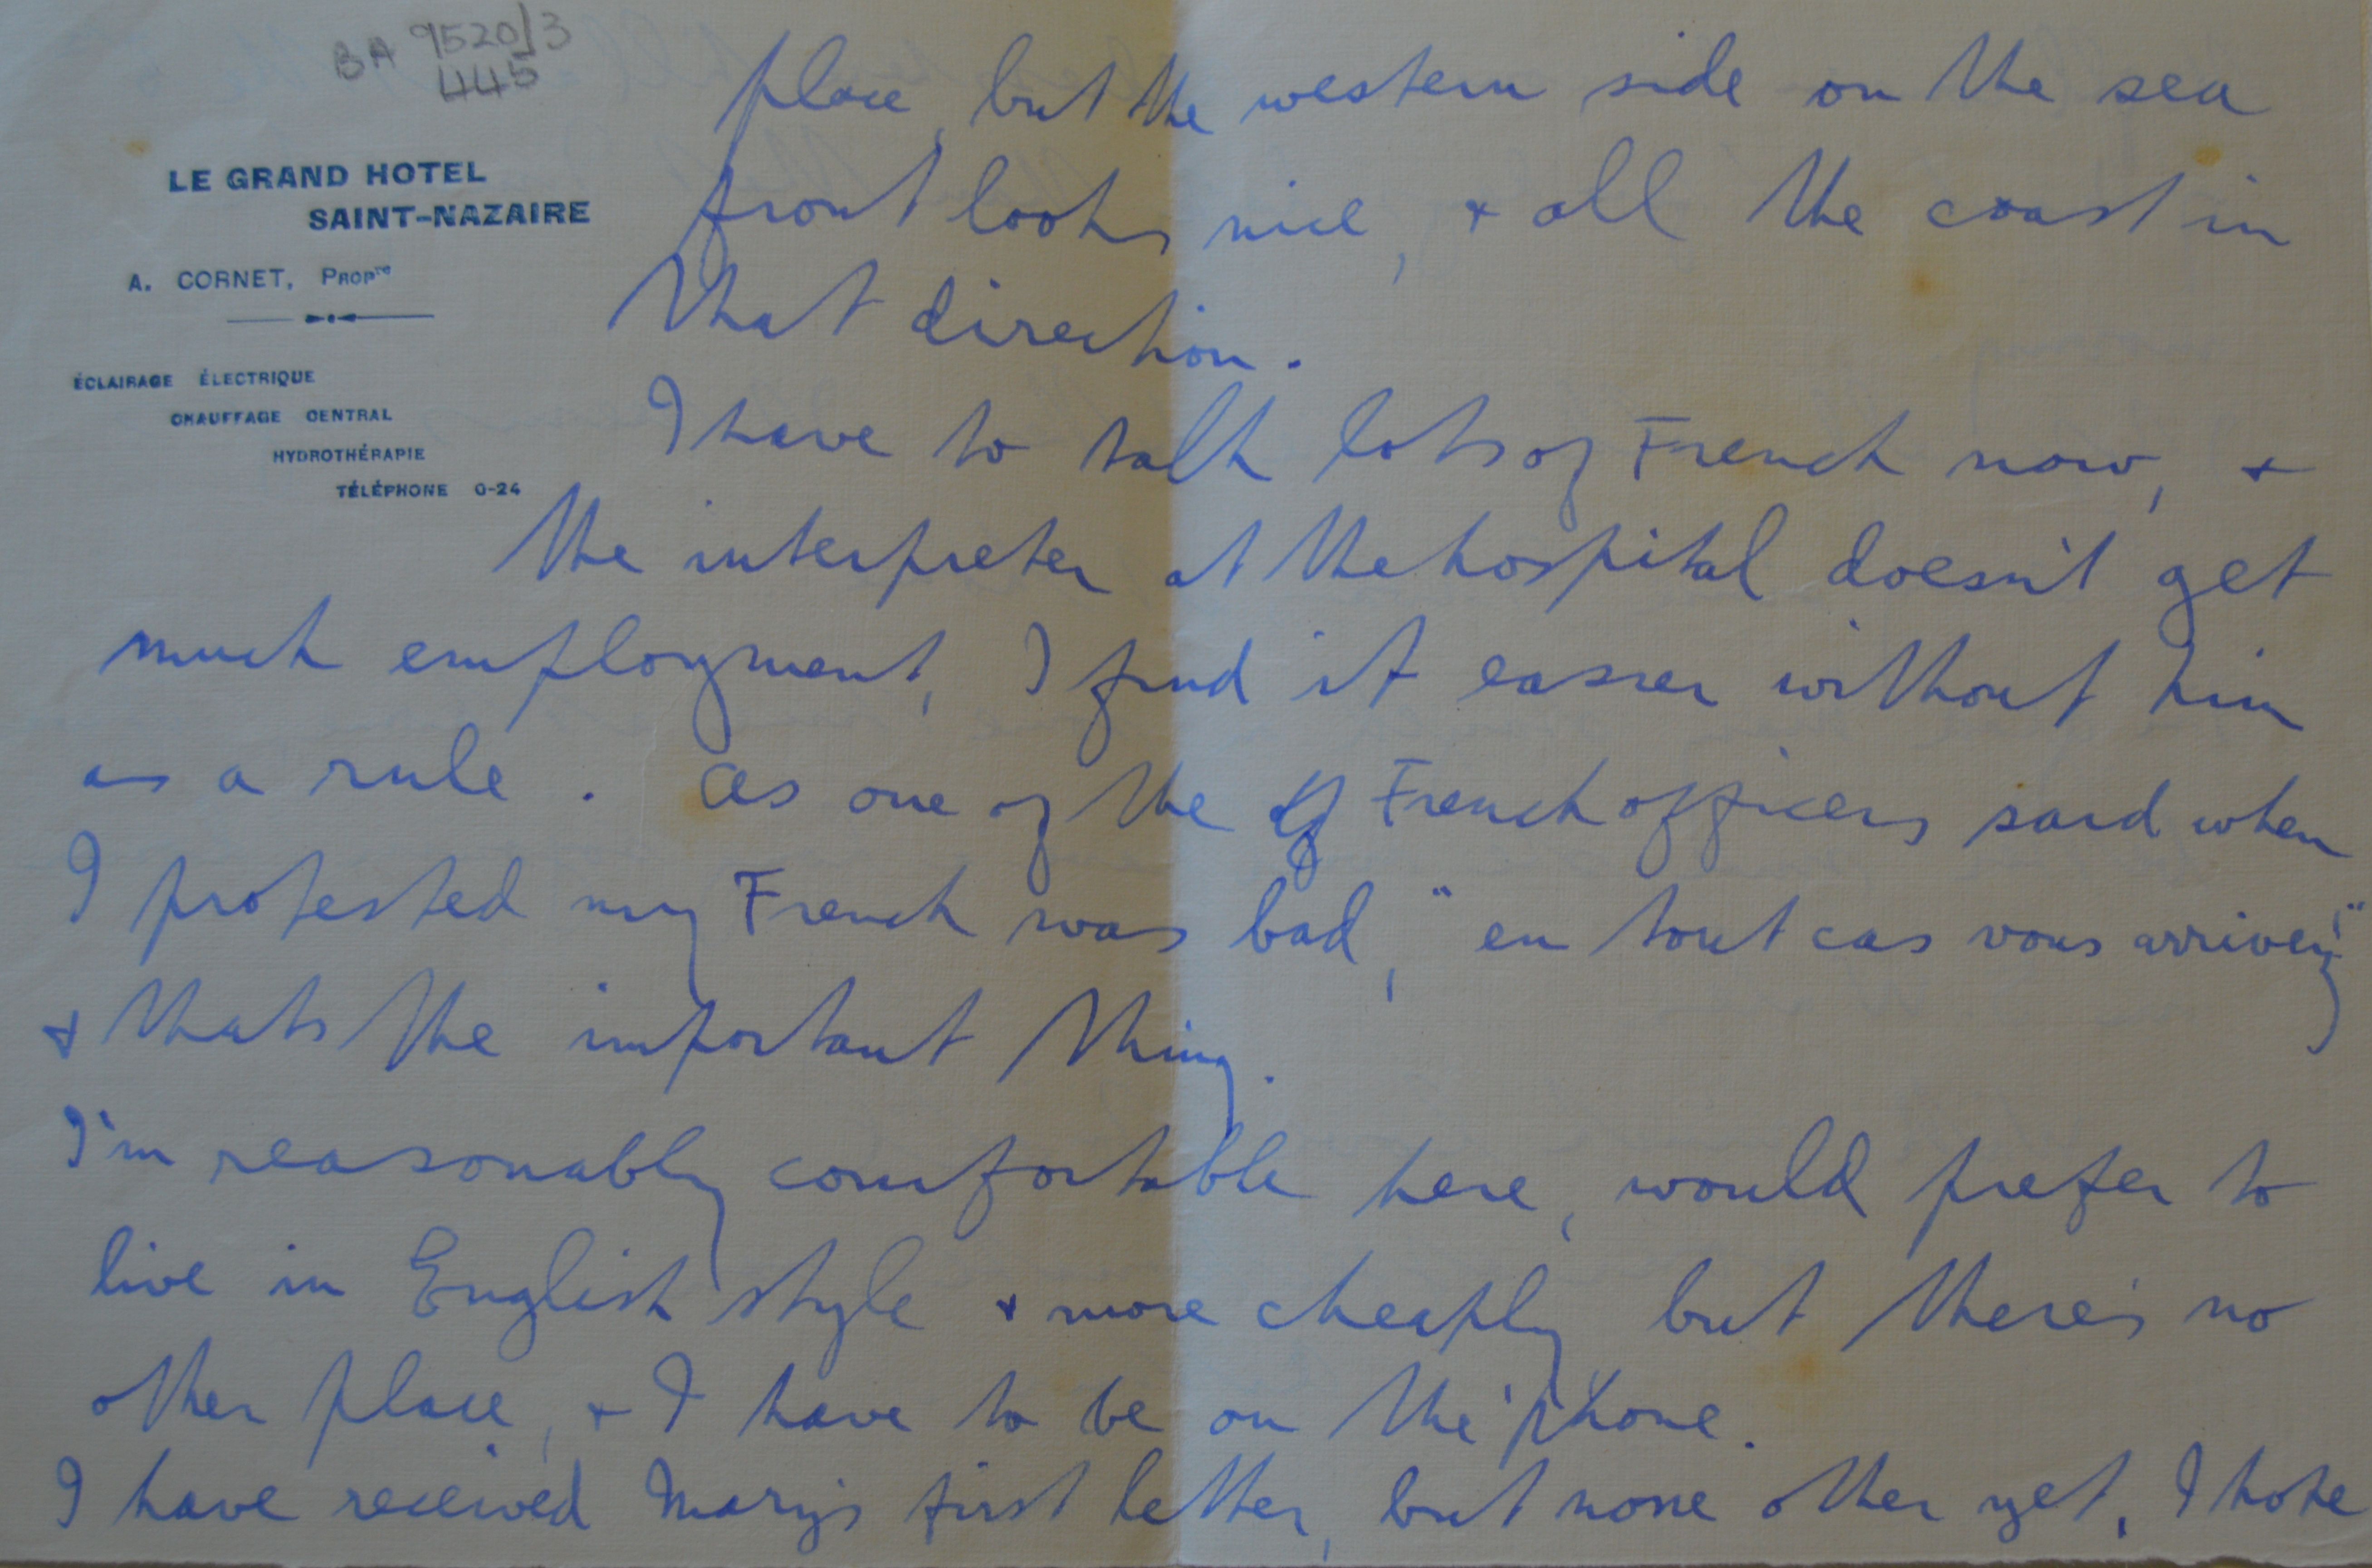 BA 9520/3
445
LE GRAND HOTEL
SAINT-NAZAIRE
A. CORNET, Propre
ÉCLAIRAGE ÉLECTRIQUE
CHAUFFAGE CENTRAL
HYDROTHÉRAPIE
TÉLÉPHONE 0-24
place, but the western side on the sea
front looks nice, & all the coast in
that direction.
I have to talk lots of French now, &
the interpreter at the hospital doesn't get
much employment, I find it easier without him
as a rule. As one of the French officers said when
I protested my French was bad, "en tout cas vous arrivez"
& thats the important thing.
I'm reasonably comfortable here, would prefer to
live in English style & more cheaply but there's no
other place, & I have to be on the 'phone.
I have received Mary's first letter, but none other yet. I hope